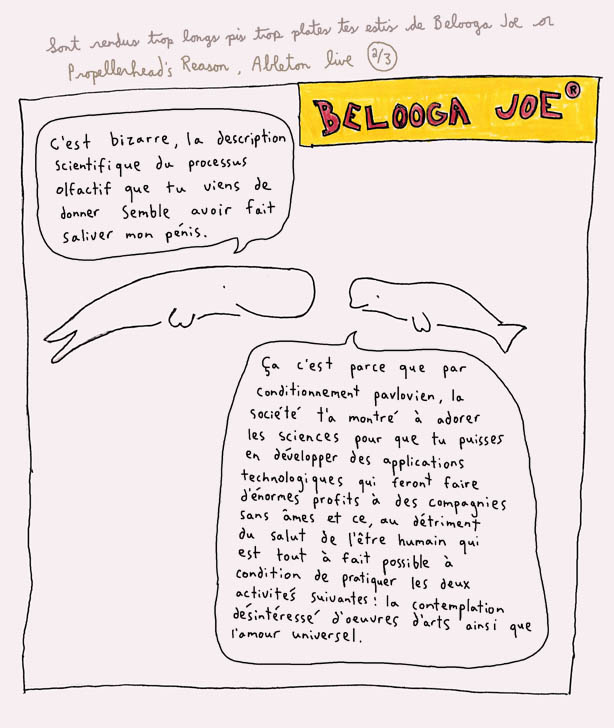 Sont rendus trop longs pis trop plates tes estis de Belooga Joe or
Propellerhead's Reason, Ableton live 2/3
BELOOGA JOE®
C'est bizarre, la description
scientifique du processus
olfactif que tu viens de
donner semble avoir fait
saliver mon pénis.
Ça c'est parce que par
conditionnement pavlovien, la
société t'a montré à adorer
les sciences pour que tu puisses
en développer des applications
technologiques qui feront faire
d'énormes profits à des compagnies
sans âmes et ce, au détriment
du salut de l'être humain qui
est tout à fait possible à
condition de pratiquer les deux
activités suivantes: la contemplation
désintéressé d'oeuvres d'arts ainsi que
l'amour universel.